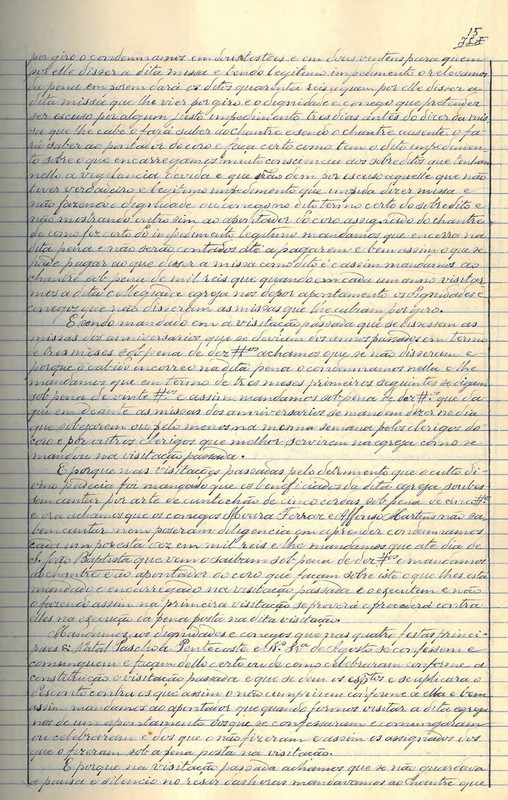 15
por giro o condemnamos em dous tostoes e em dous vintens para quem
por elle disser a dita missa e tendo legitimo impedimento o relevamos
da pena em porem dará os ditos quarenta reis a quem por elle disser a
dita missa que lhe vier por giro e o dignidade e conego que pretender
ser escuso por algum justo impedimento tres dias antes do dizer da mis
sa que lhe cabe o fará saber ao chantre e sendo o chantre ausente o fa
rá saber ao pontador do coro e faça certo como tem o dito impedimen
to sobre o que encarregamos muito consciencia aos sobreditos que tenham
nello a vigilancia devida e que não dem por escuso aquelle que não
tiver verdadeiro e legitimo impedimento que impida dizer missa e
não fazendo o dignidade ou conego no dito termo certo do sobredito e
não mostrando outro sim ao apontador do coro assignado do chantre
de como fez certo de impedimento legitimo mandamos que encorra na
dita pena e não serão contados até a pagarem e bem assim o que se
pode pagar ao que disser a missa como dito é e assim mandamos ao
chantre sob pena de mil reis que quando em cada um anno visitar
mos a dita collegiada egreja nos dê por apontamento os dignidades e
conegos que não disseram as missas que lhe cabiam por giro.
E sendo mandado em a visitação passada que se dissessem as
missas dos anniversarios que se deviam dos annos passados em termo
de tres mises sob pena de dez #os achamos que se não disseram e
porque o cabido incorreo na dita pena o condemnamos nella e lhe
mandamos que em termo de tres meses primeiros seguintes se digam
sob pena de vinte #os e assim mandamos sob pena de dez #os que da
qui em deante as missas dos anniversarios se mandem dizer no dia
que sobejarem ou pelo menos na mesma semana pelos clerigos do
coro e por outros clerigos que melhor servirem na egreja como se
mandou na visitação passada.
E porque nas visitações passadas pelo detrimento que o culto di
vino padecia foi mandado que os beneficiados da dita egreja soubes
sem cantar por arte de cantochão de cinco cordas sob pena de cinco #os
e ora achamos que os conegos Moura Ferraz e Affonso Martins não sa
bem cantar nem poseram diligencia em aprender condemnamos
cada um por esta vez em mil reis e lhe mandamos que até dia de
S. João Baptista que vem o saibam sob pena de dez #os e mandamos
ao chantre e ao apontador do coro que façam sobre isto o que lhes está
mandado e encarregado na visitação passada e o executem e não
o fazendo assim na primeira visitação se proverá e procederá contra
elles na execução da pena posta na dita visitação.
Mandamos aos dignidades e conegos que nas quatro festas princi
paes s. Natal Paschoa Pentecoste e N.ª Sr.ª de Agosto se confessem e
comunguem e façam dello certo ou de como celebraram conforme a
constituição e visitação passada e que se dem os espTos e se aplicará o
desconto contra os que assim o não cumprirem conforme a ella e bem
assim mandamos ao apontador que quando formos visitar a dita egreja
nos dê um apontamento dos que se confessaram e comungaram
ou celebraram e dos que o não fizeram e assim os assignados dos
que o fizeram sob a pena posta na visitação.
E porque na visitação passada achamos que se não guardava
a pausa e silencio no resar das horas mandavamos ao chantre que